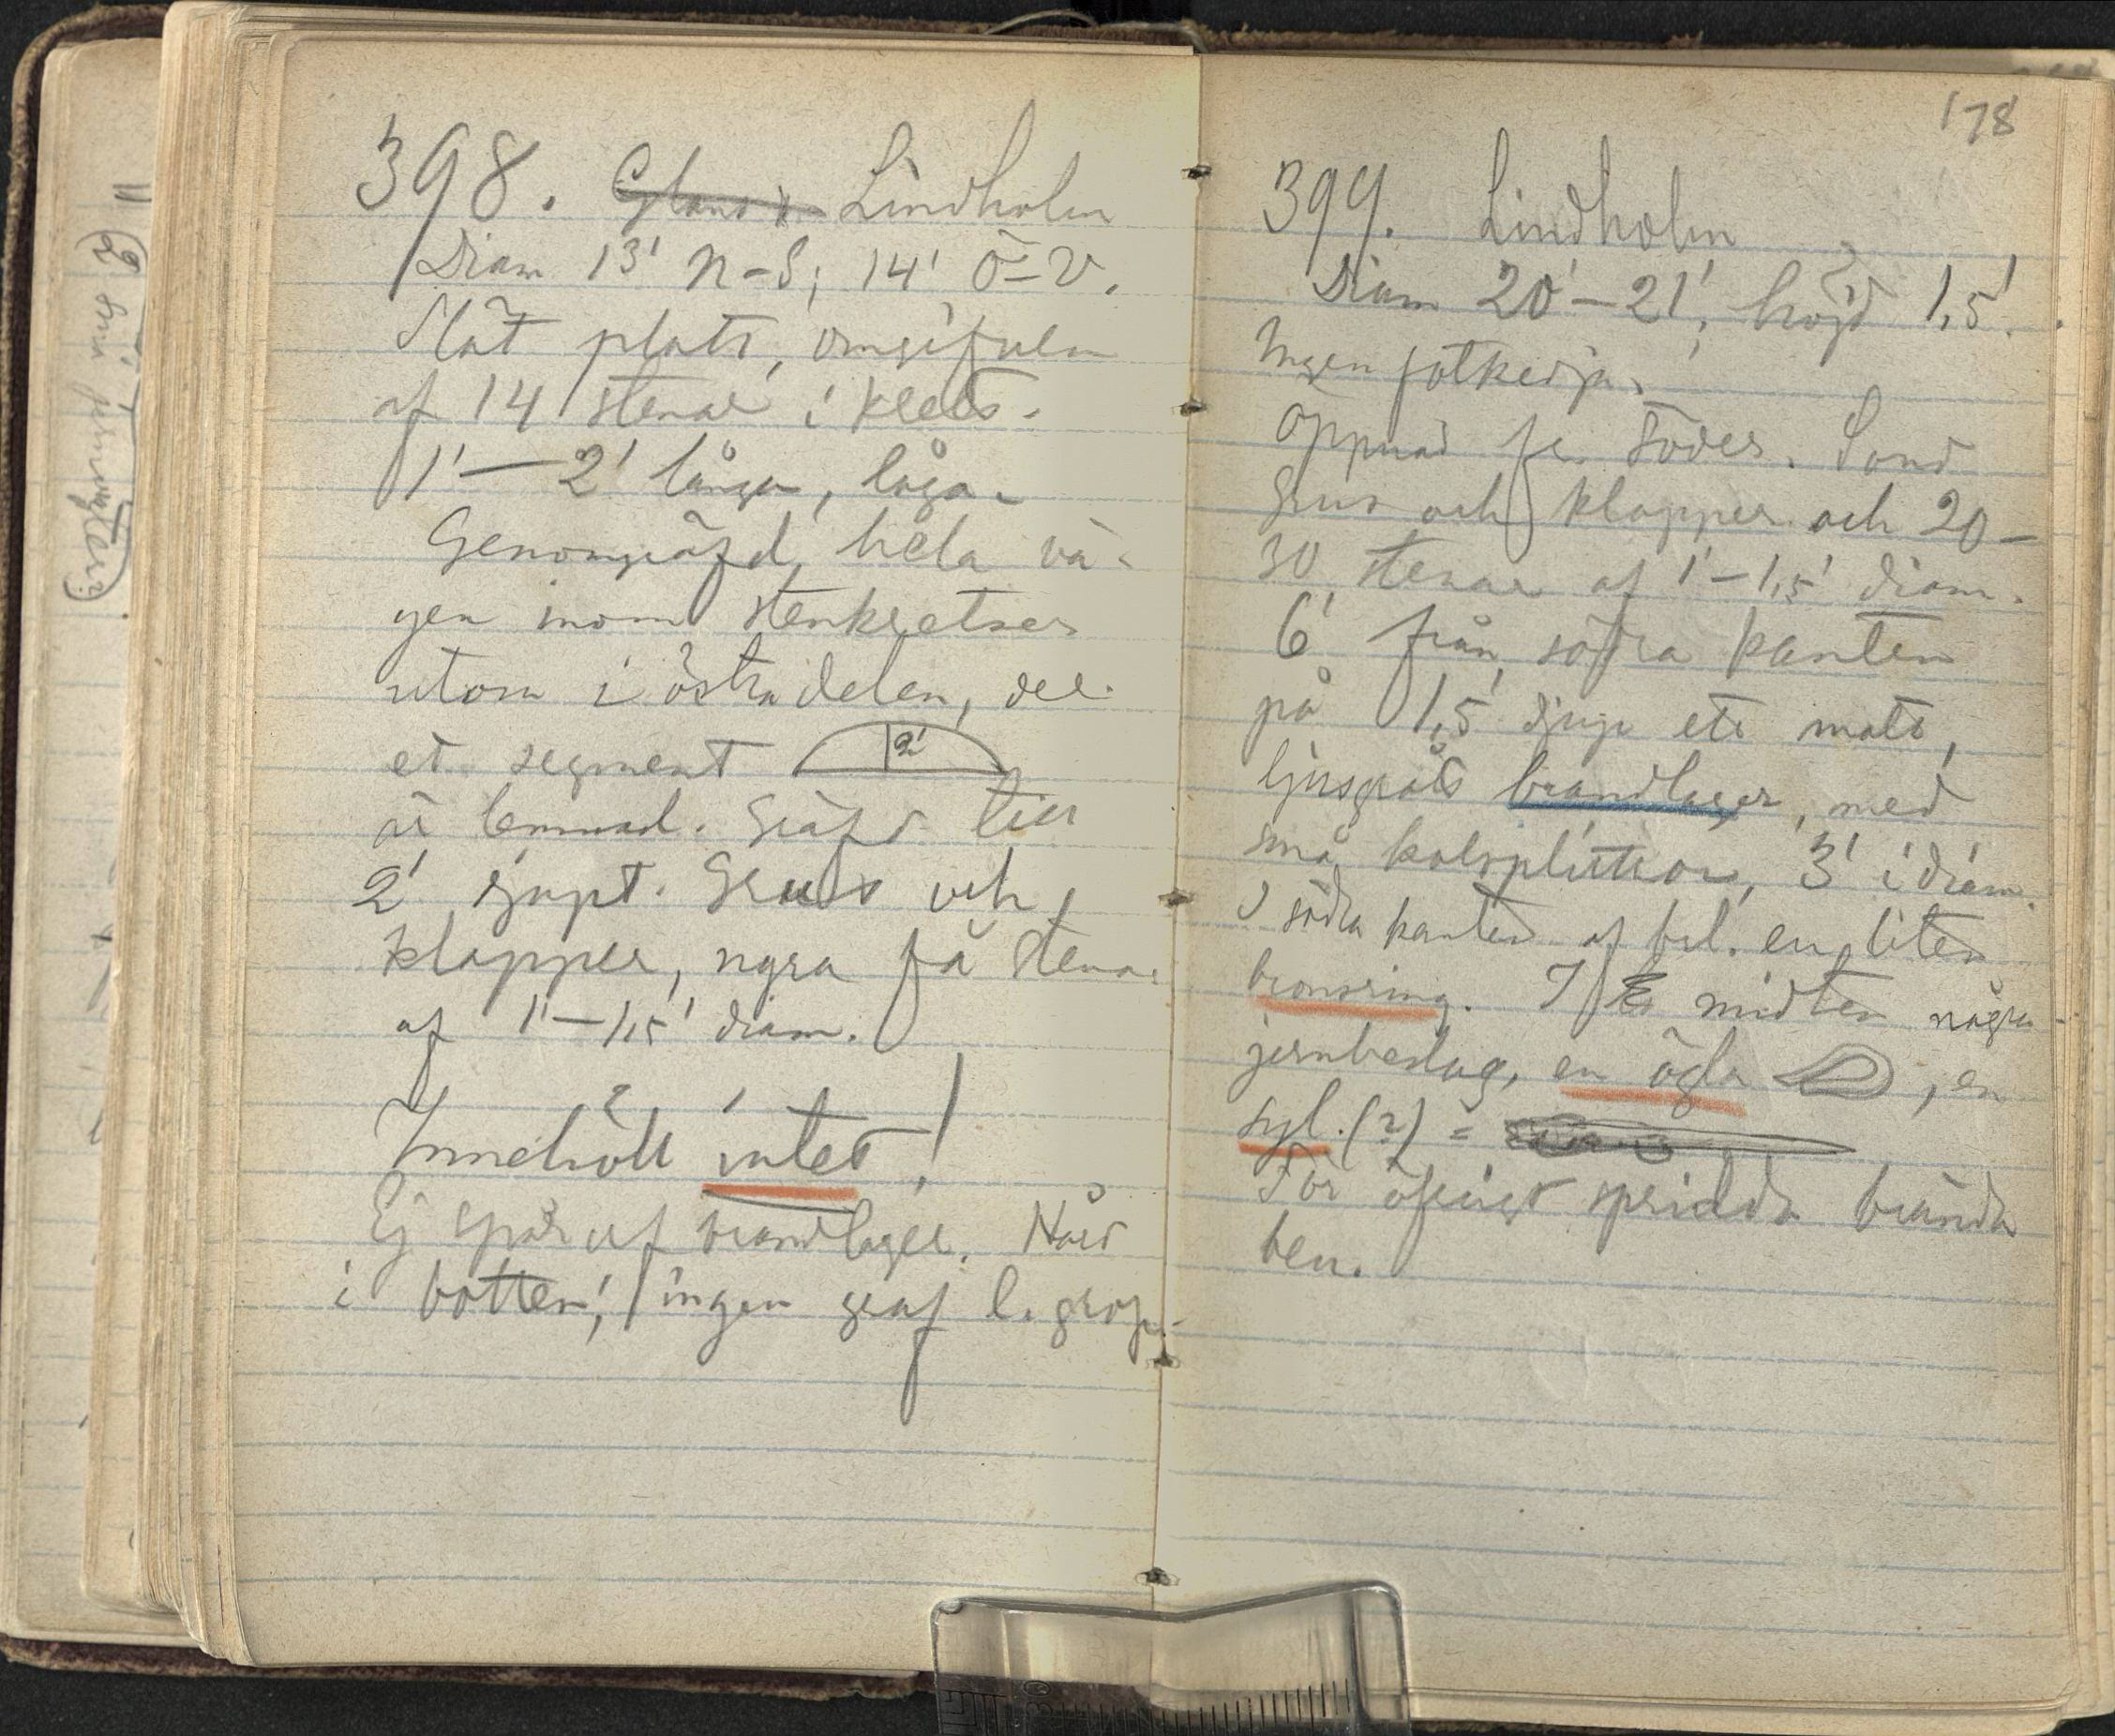 398. Lindholm
Diam 13' N-S; 14' Ö-V.
Slät plats, omgifven
af 14 stenar i krets.
1'—2' långa, låga.
Genomgräfd hela vä-
gen inom stenkretsen
utom i östra delen, der
et segment 2'
är lemnad. Gräfd till
2' djupt. Grus och
klapper, ngra få stenar
af 1'—1,5' diam.
Innehöll intet!
Ej spår af brandlager. Hård
i botten; ingen graf l. grop.
178
399. Lindholm
Diam 20'—21', höjd 1,5'.
Ingen fotkedja.
Öppnad fr. söder. Sand
grus och klapper och 20-
30 stenar af 1'—1,5' diam.
6' från södra kanten
på 1,5' djup ett matt,
ljusgrått brandlager, med
små kolsplittror, 3' i diam.
I södra kanten af brl. en liten
bronsring. I midten några
jernbeslag, en ögla , en
syl. (?) =
För öfrigt spridda brända
ben.